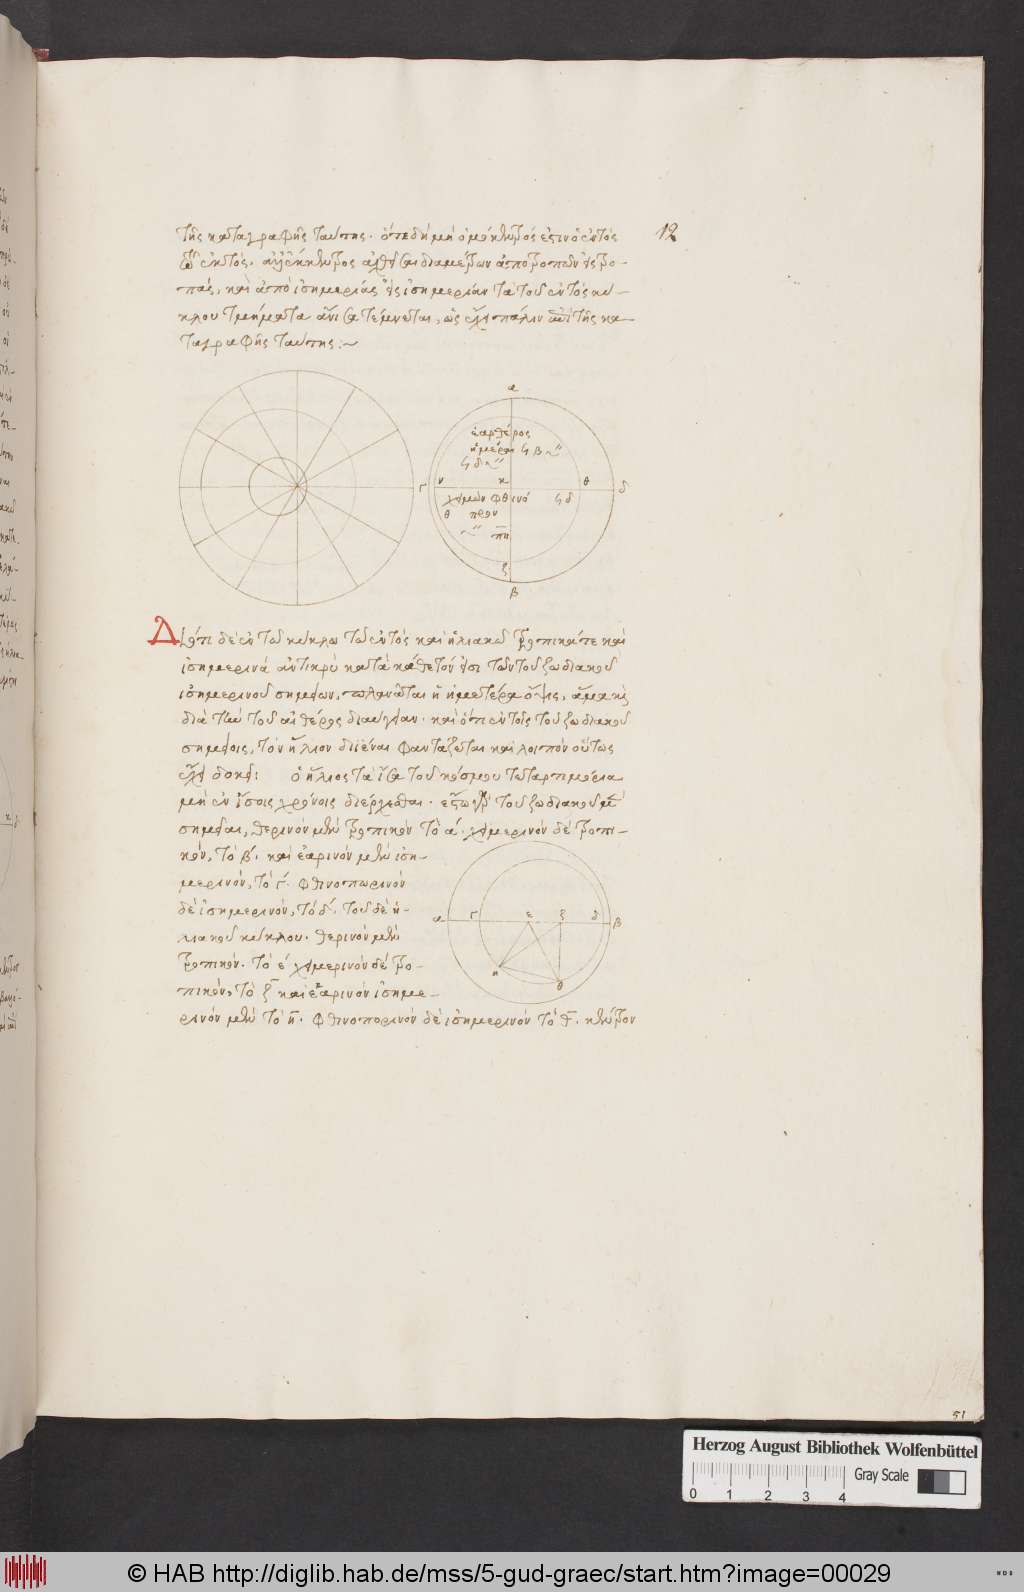 τῆς καταγραφῆς ταύτης. ὅτε δὴ μὴ ὁμόκεντρός ἐστιν ὁ ἐντὸς
12
τῷ ἐκτός. ἀλλ' ἔκκεντρος
πάς, καὶ ἀπὸ ἰσημερίας εἰς ἰσημερίαν τὰ τοῦ ἐντὸς κύ-
κλου τμήματα ἄνισα τέμνεται, ὡς ἔχει πάλιν ἐπὶ τῆς κα-
ταγραφῆς ταύτης:~
α
ἐαρ θέρος
ἡμέραι ϟβ
ϟδ
γ ν κ θ δ
χειμὼν φθινό ϟδ
θ πωρον
πη
ξ
β
Διότι δὲ ἐν τῶ κύκλω τῶ ἐντὸς καὶ ἡλιακῶ τροπικά τε καὶ
ἰσημερινὰ ἀντικρὺ κατὰ κάθετόν εἰσι τῶν τοῦ ζωδιακοῦ
ἰσημερινοῦ σημείων, πλανᾶται ἡ ἡμετέρα ὄψις, ἅμα καὶ
διὰ τὴν τοῦ αἰθέρος διαύγειαν. καὶ ὅτι ἐν τοῖς τοῦ ζωδιακοῦ
σημείοις, τὸν ἥλιον διϊέναι φαντάζεται καὶ λοιπὸν οὕτως
ἔχειν δοκεῖ: ὁ ἥλιος τὰ ἴσα τοῦ κόσμου τεταρτημόρια
μὴ ἐν ἴσοις χρόνοις διέρχεσθαι. ἔστω γὰρ τοῦ ζωδιακοῦ μὲν
σημεῖα, θερινὸν μὲν τροπικὸν τὸ α. χειμερινὸν δὲ τροπι-
κόν, τὸ β. καὶ ἐαρινὸν μὲν ἰση-
μερινόν, τὸ γ. φθινοπωρινὸν
δὲ ἰσημερινόν, τὸ δ. τοῦ δὲ ἡ-
λιακοῦ κύκλου. θερινὸν μὲν
τροπικόν. τὸ ε χειμερινὸν δὲ τρο-
πικόν, τὸ ζ καὶ ἐαρινὸν ἰσημε-
ρινὸν μὲν τὸ η. φθινοπορινὸν δὲ ἰσημερινὸν τὸ θ. κέντρον
α γ ε ξ δ β
η
θ
51
Herzog August Bibliothek Wolfenbüttel
Gray Scale
0 1 2 3 4
© HAB http://diglib.hab.de/mss/5-gud-graec/start.htm?image=00029